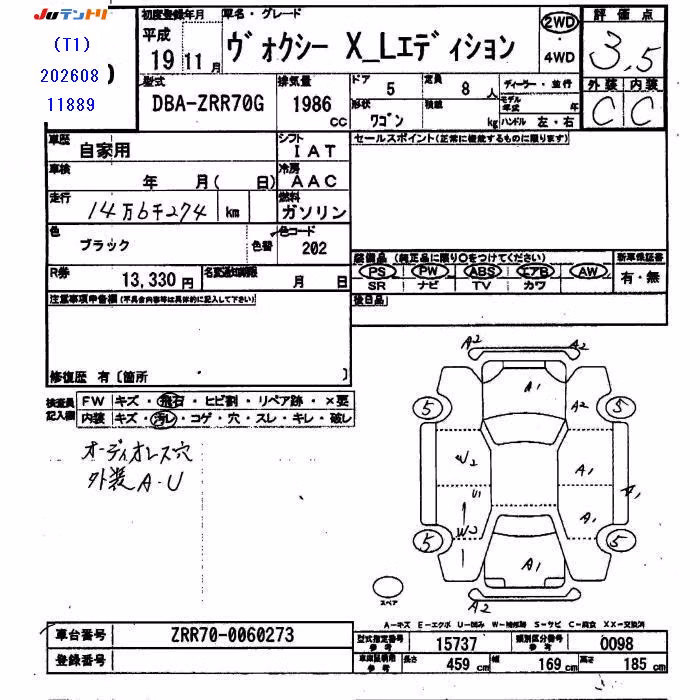 JUテントリ
(T1)
202608
11889
初度登録年月
車名・グレード
平成
19 11月
ヴォクシー X_Lエディション
2WD
4WD
評価点
3.5
外装 内装
C C
型式
DBA-ZRR70G
排気量
1986 cc
ドア
5
定員
8 人
ディーラー・並行
形状
ワゴン
積載
kg
モデル年式
年
ハンドル 左・右
車歴
自家用
シフト
IAT
セールスポイント(正常に機能するものに限ります)
車検
年 月( 日)
冷房
AAC
走行
14万6千274 km
燃料
ガソリン
色
ブラック
色替
色コード
202
装備品 (純正品に限り○をつけてください)
新車保証書
PS PW ABS エアB AW
有・無
SR ナビ TV カワ
R券
13,330 円
名変通知期限
月 日
後日品
注意事項申告欄(不具合内容等は具体的に記入して下さい)
修復歴 有〔箇所 〕
検査員記入欄
FW キズ・飛石・ヒビ割・リペア跡・×要
内装 キズ・汚レ・コゲ・穴・スレ・キレ・破レ
オーディオレス穴
外装 A・U
A2
A2 A2
A1
5 A2 5
W2 A1
U1 A1
W2 A1
5 5
A1
スペア
A2
A-キズ E-エクボ U-凹み W-補修跡 S-サビ C-腐食 XX-交換済
車台番号
ZRR70-0060273
型式指定番号 参考
15737
類別区分番号 参考
0098
登録番号
車庫証明用 参考
長さ
459 cm
幅
169 cm
高さ
185 cm